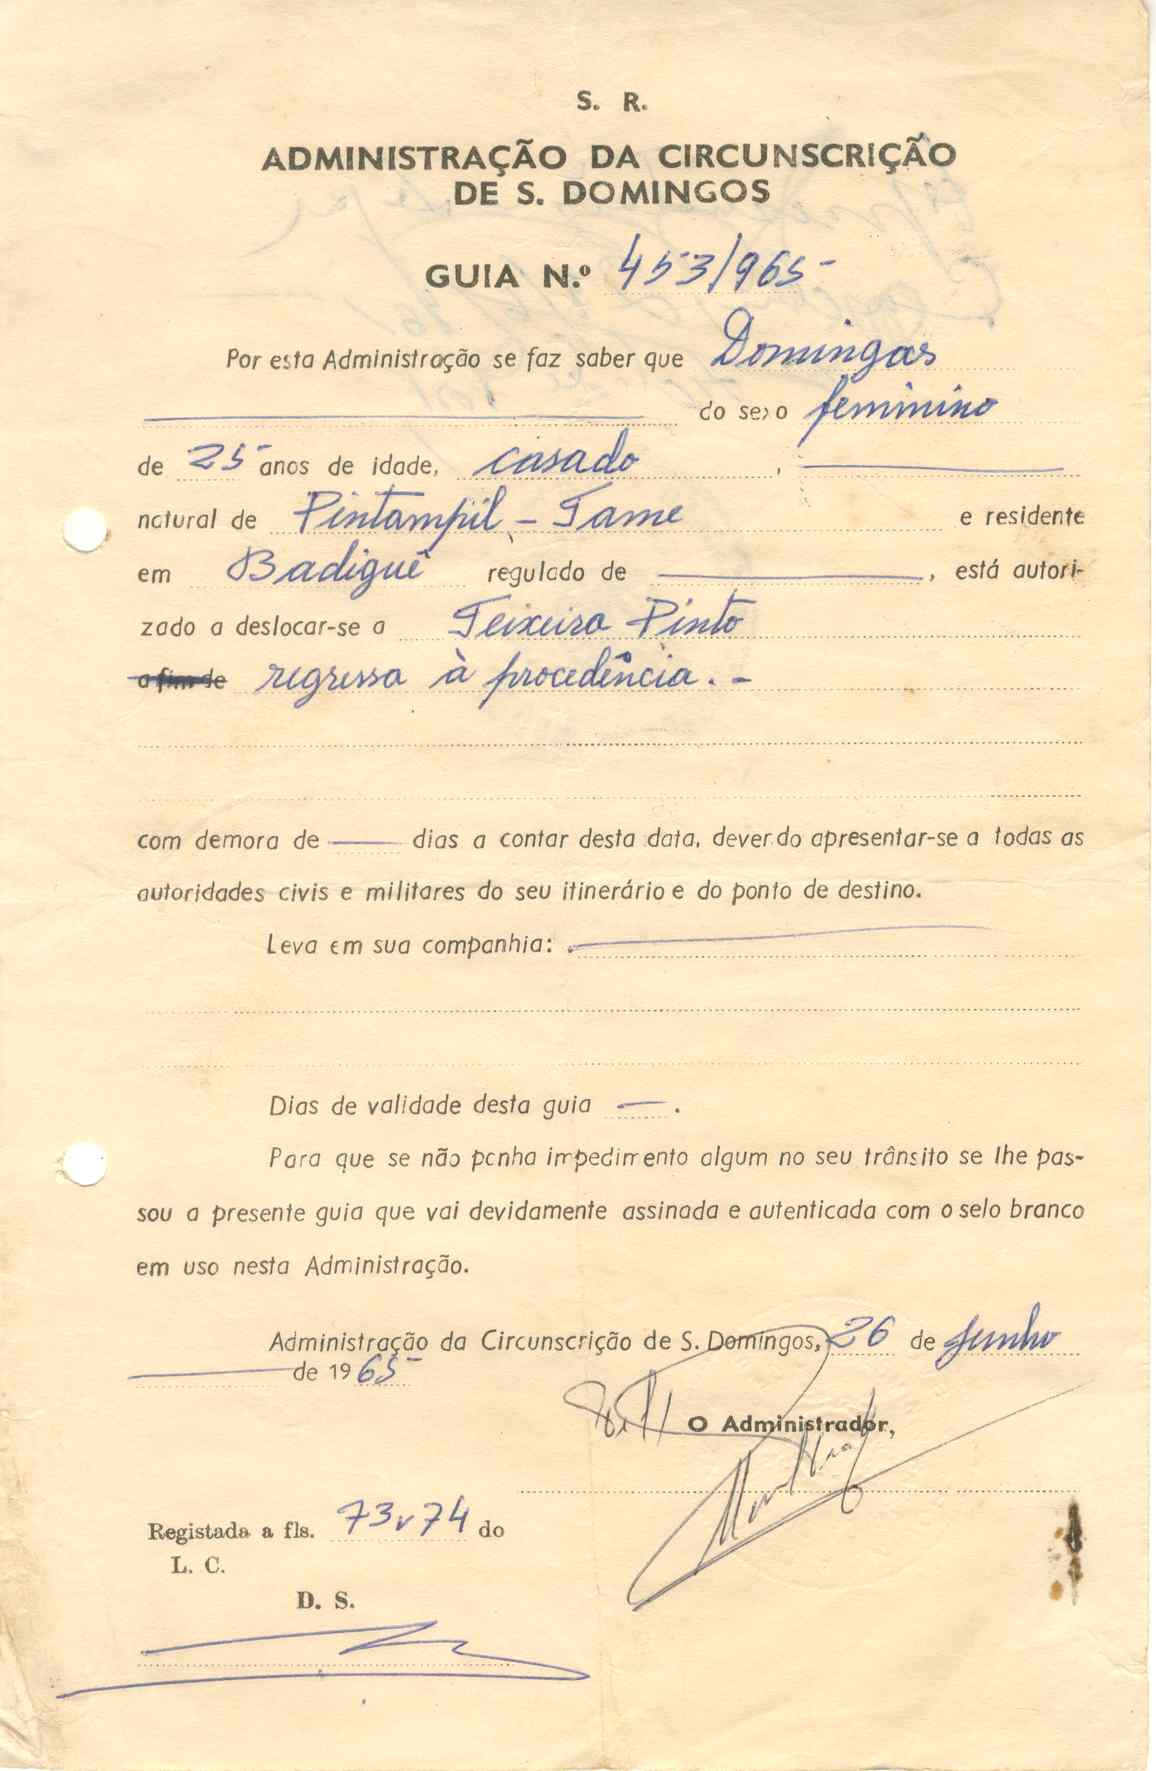 S. R.
ADMINISTRAÇÃO DA CIRCUNSCRIÇÃO
DE S. DOMINGOS
GUIA N.º 453/965-
Por esta Administração se faz saber que Domingas
do sexo feminino
de 25 anos de idade, casado,
natural de Pintampil - Tame e residente
em Badiguê regulado de , está autori-
zado a deslocar-se a Teixeira Pinto
a fim de regressa à procedência. -
com demora de dias a contar desta data, devendo apresentar-se a todas as
autoridades civis e militares do seu itinerário e do ponto de destino.
Leva em sua companhia:
Dias de validade desta guia - .
Para que se não ponha impedimento algum no seu trânsito se lhe pas-
sou a presente guia que vai devidamente assinada e autenticada com o selo branco
em uso nesta Administração.
Administração da Circunscrição de S. Domingos, 26 de Junho
de 1965-
O Administrador,
Registada a fls. 73v74 do
L. C.
D. S.